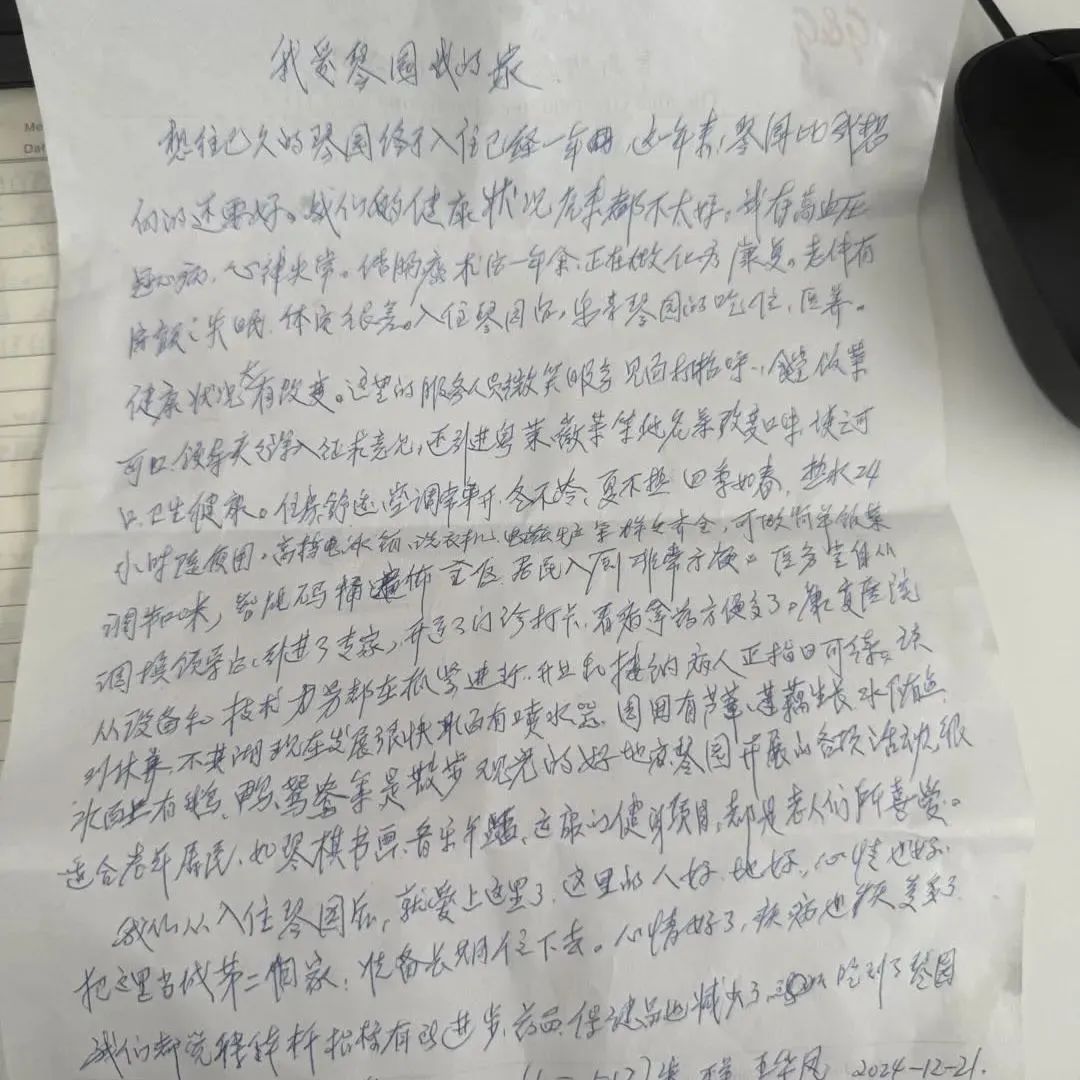 我爱琴园我的家
想往已久的琴园终于入住已经一年,这一年来,琴园比我想
的还要好。我们的健康状况原来都不太好,我有高血压
冠心病,心神失常。结肠癌术后一年余,正在做化疗康复。老伴有
失眠、体质很差。入住琴园后,琴园的吃、住、医养。
健康状况大有改变。这里的服务人员微笑服务见面打招呼,食堂饭菜
可口领导天征求意见,还引进粤菜徽菜等地名菜改变口味,使之可
口卫生健康。住房舒适空调常年开,冬不冷、夏不热四季如春,热水24
小时随便用。高档电冰箱、洗衣机、电磁炉等样样齐全,可做简单饭菜
调节口味,智能码桶遍佈全区居民入厕非常方便。医务室自从
调换领导后,引进了专家,开通了门诊打卡,看病拿药方便多了。康复医院
从设备和技术力另都在抓紧进行,开业和接纳病人正指日可待。该
湖现在发展很快里面有喷水器,周围有芦苇、莲藕生长水
水面上有鹅、鸭、鸳鸯等是散步观光的好地方琴园开展的各项活动,很
适合老年居民、如琴棋书画、音乐午蹈,这服的健身项目,都是老人们所喜爱。
我们从入住琴园后,就爱上这里了,这里的人好、地好,心情也好
把这里当成第二個家,准备长期住下去。心情好了,疾病也
我们都觉得各种指标有所进步,药品、保健品也减少了,吃到了琴园
王华凤 2024-12-21.